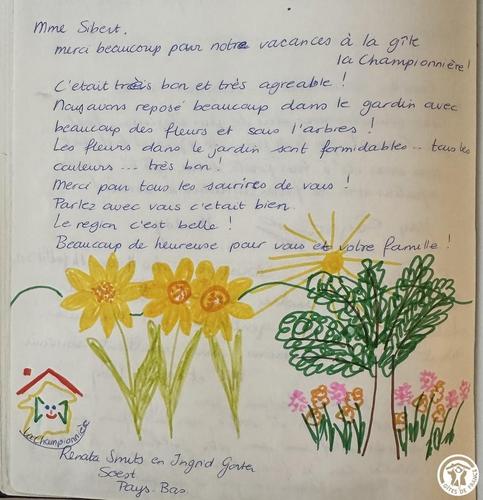 Mme Sibert.
merci beaucoup pour notre vacances à la gîte
la Championnière!
C'etait très bon et très agreable!
Nous avons reposé beaucoup dans le gardin avec
beaucoup des fleurs et sous l'arbres!
Les fleurs dans le jardin sont formidables... tous les
couleurs... très bon!
Merci pour tous les sourires de vous!
Parlez avec vous c'etait bien.
Le region c'est belle!
Beaucoup de heureuse pour vous et votre famille!
la championnière
Renata Smits en Ingrid
Soest
Pays-Bas.
GÎTES DE FRANCE